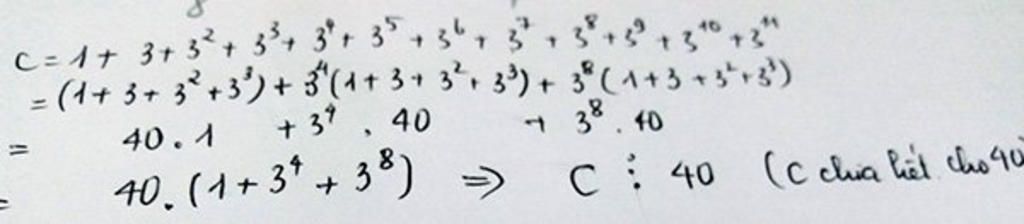 C = 1 + 3 + 3² + 3³ + 3⁴ + 3⁵ + 3⁶ + 3⁷ + 3⁸ + 3⁹ + 3¹⁰ + 3¹¹
= (1 + 3 + 3² + 3³) + 3⁴(1 + 3 + 3² + 3³) + 3⁸(1 + 3 + 3² + 3³)
= 40 . 1 + 3⁴ . 40 + 3⁸ . 40
= 40 . (1 + 3⁴ + 3⁸) ⇒ C ⋮ 40 (C chia hết cho 40